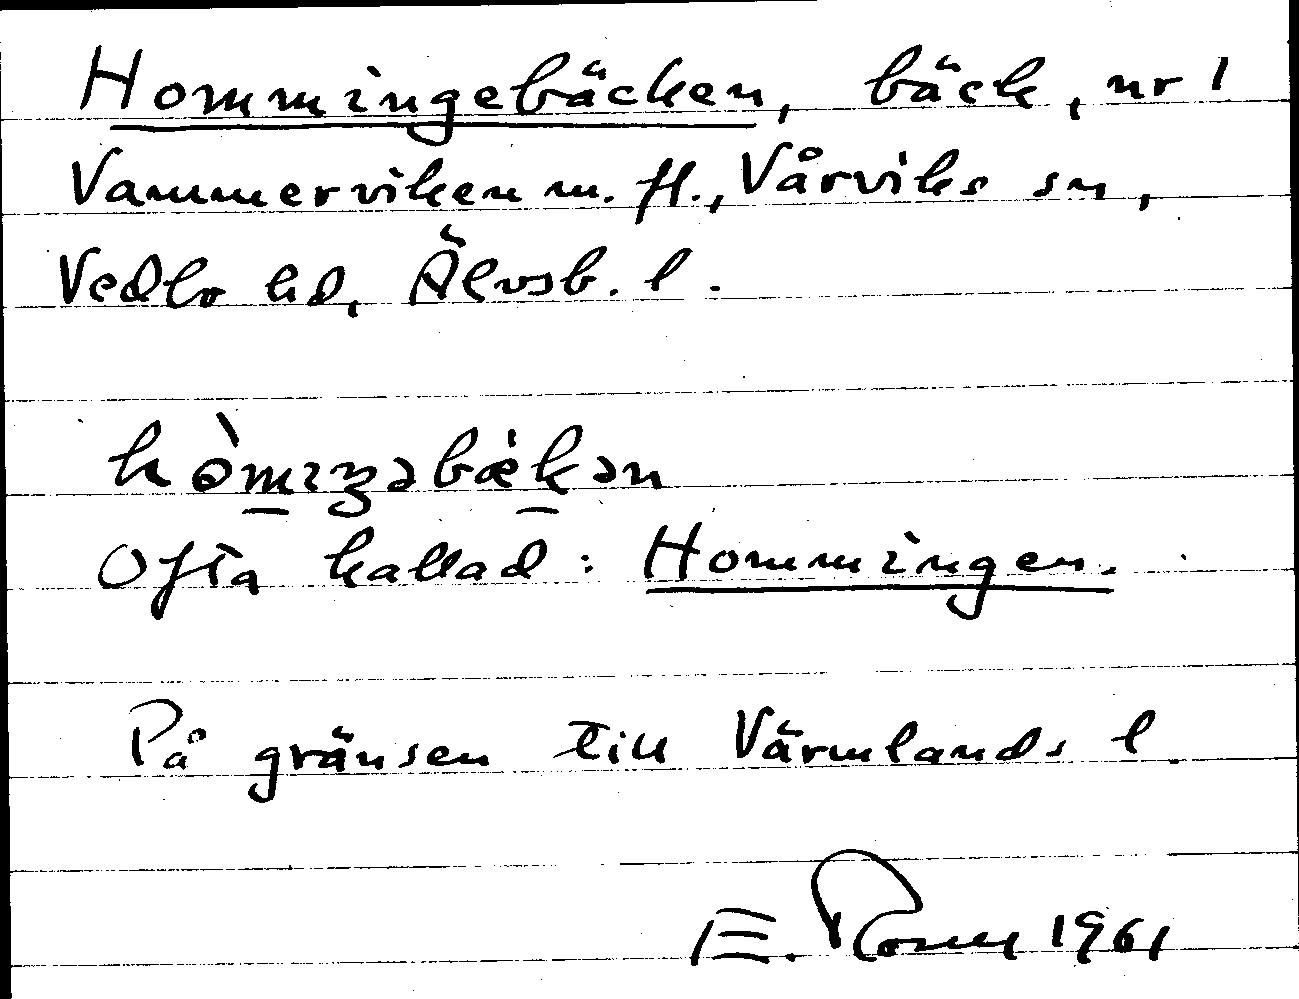 Hommingebäcken, bäck, nr 1
Vammerviken m. fl., Vårviks sn,
Vedbo hd, Älvsb. l.
hòmıŋəbæ̀kən
Ofta kallad: Hommingen.
På gränsen till Värmlands l.
E. 1961